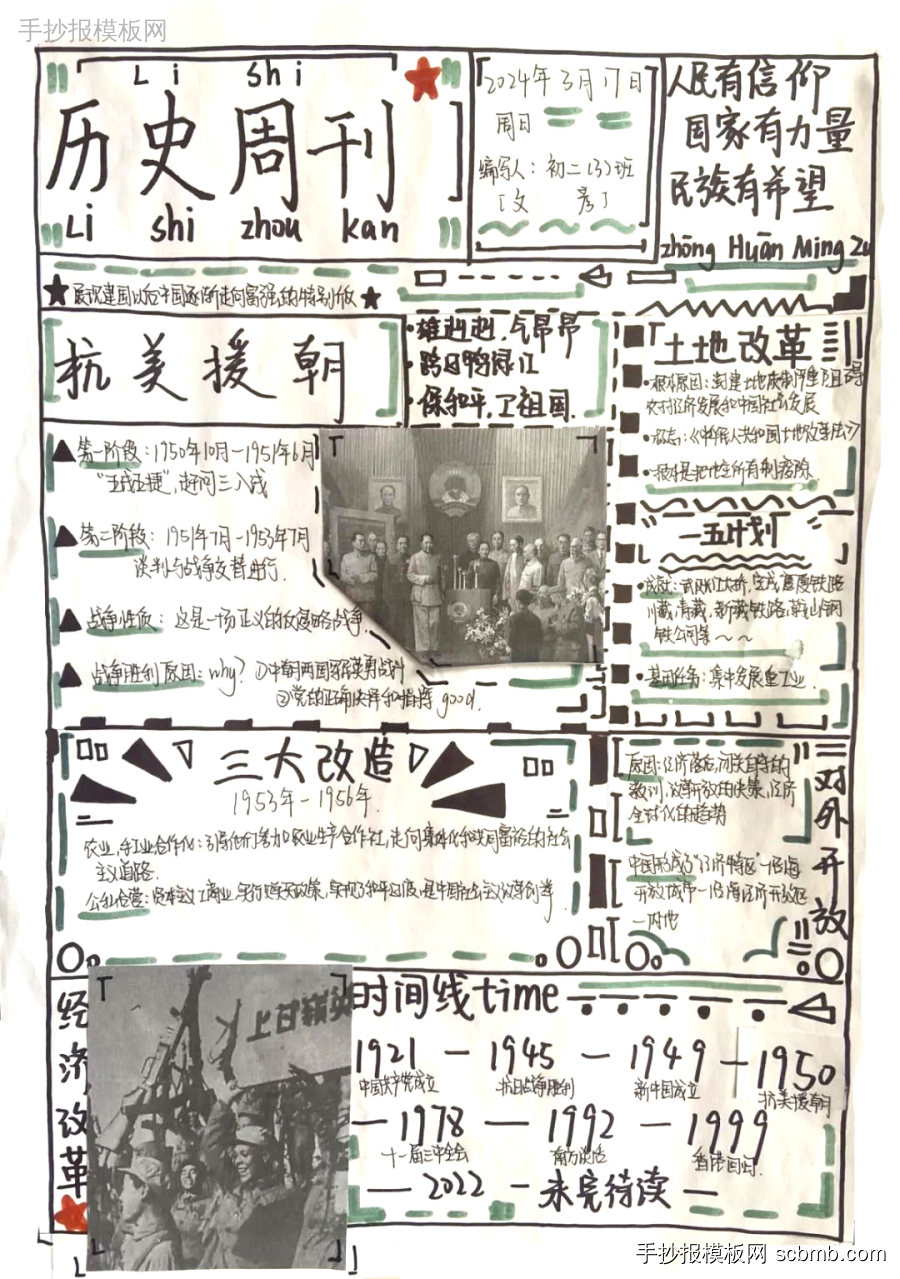 手抄报模板网
Li shi
历史周刊
Li shi zhou kan
2024年3月17日
周日
编写人：初二(3)班
[文 彦]
人民有信仰
国家有力量
民族有希望
zhōng Huān Ming Zu
★展现建国以后中国逐渐走向富强的特别版★
抗美援朝
·雄赳赳，气昂昂
·跨过鸭绿江
·保和平，卫祖国.
▲第一阶段：1950年10月—1951年6月
“五战五捷”，
▲第二阶段：1951年7月—1953年7月
谈判与战争交替进行.
▲战争性质：这是一场正义的反侵略战争.
▲战争胜利原因：why? ①中朝两国军民英勇战斗
②党的正确决择和指挥 good.
「土地改革
·根本原因：封建土地制度严重阻碍
农村经济发展和中国社会发展
·标志：《中华人民共和国土地改革法》
·根本是把地主所有制废除.
一五计划
·成就：武汉长江大桥，宝成、鹰厦铁路
川藏、青藏、新藏铁路，鞍山钢
铁公司等～～
·基础任务：集中发展重工业.
三大改造
1953年-1956年.
农业，手工业合作化：引导他们参加农业生产合作社，走向集体化和共同富裕的社会
主义道路.
公私合营：资本主义工商业，实行赎买政策，实现了和平过度，是中国社会主义改造创举.
对外开放
原因：经济落后，闭关自守的
教训，改革开放的决策，经济
全球化的趋势
中国形成了“经济特区”—沿海
开放城市—沿海经济开放区
—内地
经济改革
上甘岭
时间线time
1921 — 1945 — 1949 — 1950
中国共产党成立 抗日战争胜利 新中国成立 抗美援朝
— 1978 — 1992 — 1999
十一届三中全会 南方谈话 香港回归.
— 2022 — 未完待读 —
手抄报模板网 scbmb.com